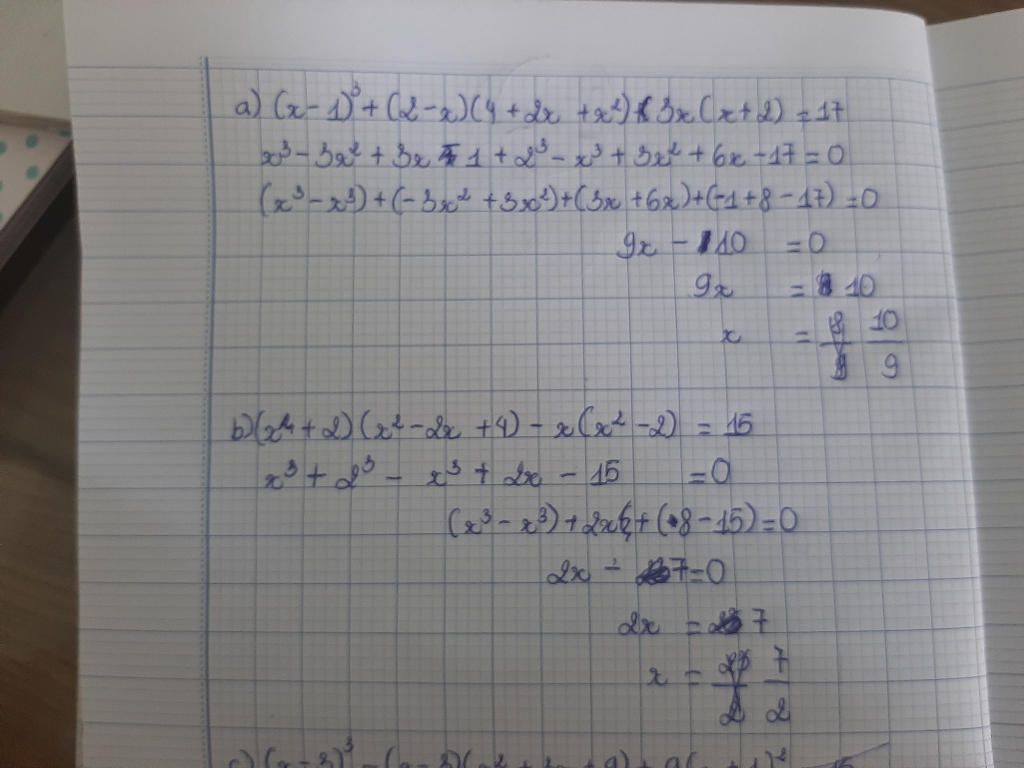 a) (x - 1)³ + (2 - x)(4 + 2x + x²) + 3x(x + 2) = 17
x³ - 3x² + 3x - 1 + 2³ - x³ + 3x² + 6x - 17 = 0
(x³ - x³) + (-3x² + 3x²) + (3x + 6x) + (-1 + 8 - 17) = 0
9x - 10 = 0
9x = 10
x = 10/9
b) (x + 2)(x² - 2x + 4) - x(x² - 2) = 15
x³ + 2³ - x³ + 2x - 15 = 0
(x³ - x³) + 2x + (8 - 15) = 0
2x - 7 = 0
2x = 7
x = 7/2
c) (x - 3)³ - (x - 3)(x² + 3x + 9) + 9(x + 1)² = 15